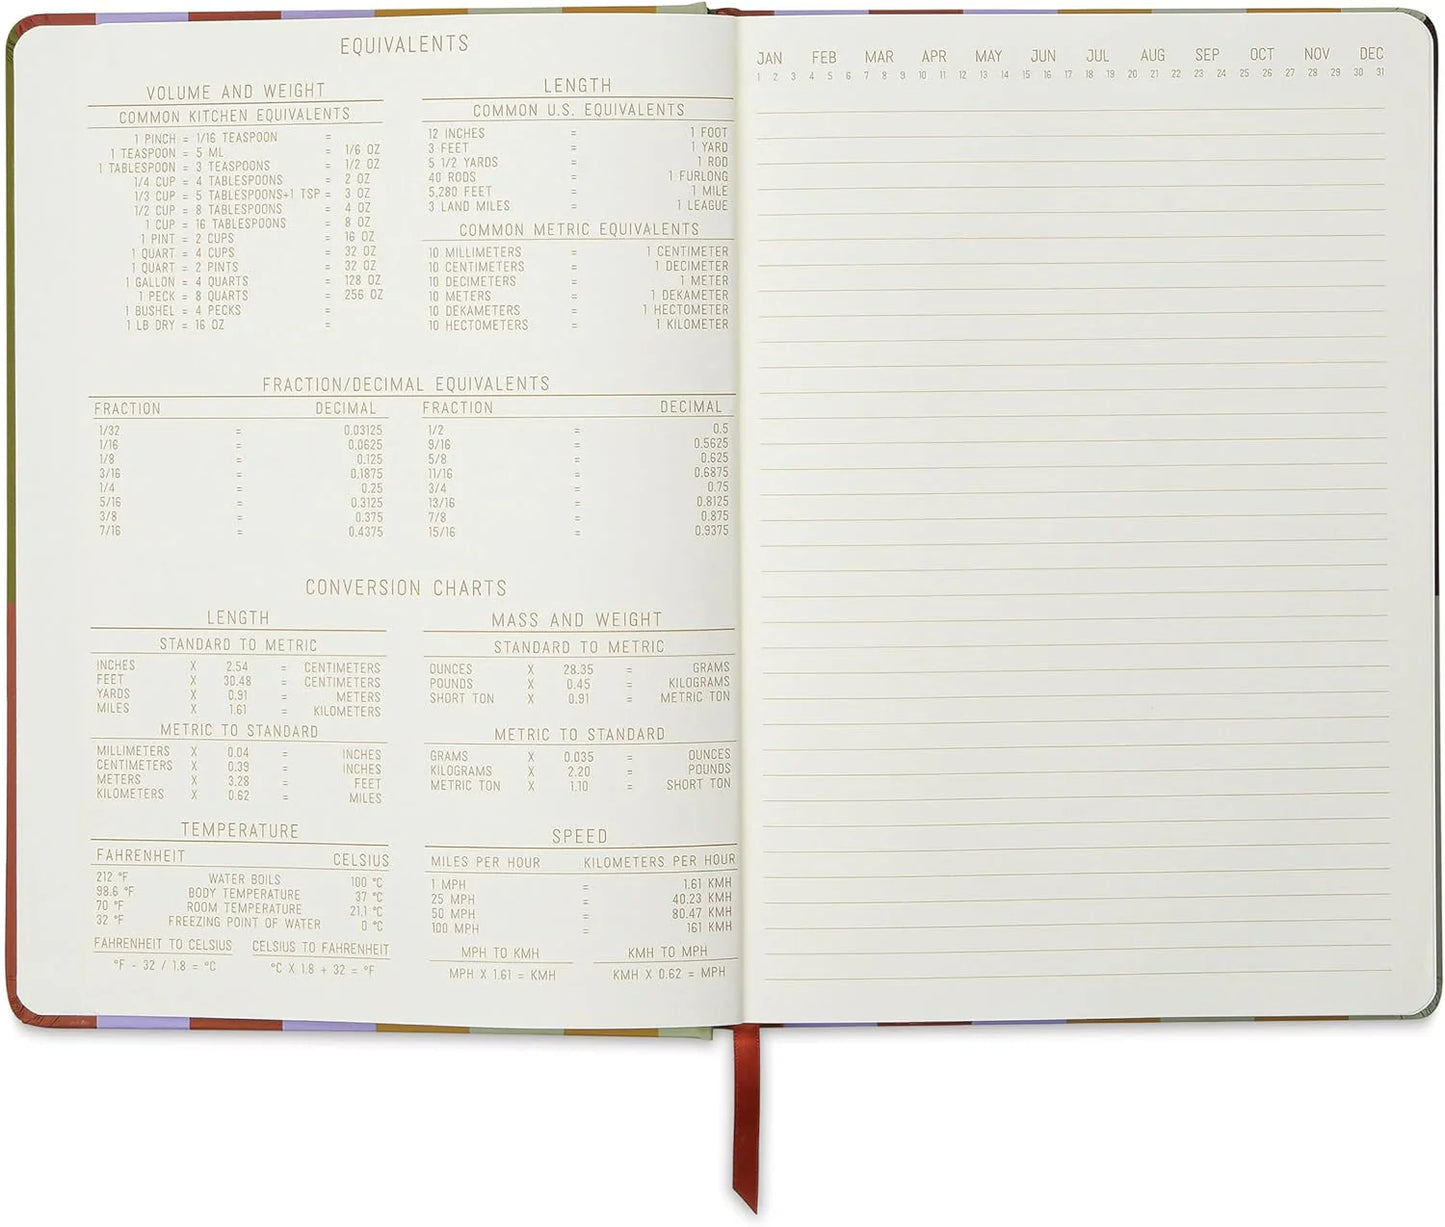 EQUIVALENTS
VOLUME AND WEIGHT
COMMON KITCHEN EQUIVALENTS
1 PINCH = 1/16 TEASPOON =
1 TEASPOON = 5 ML = 1/6 OZ
1 TABLESPOON = 3 TEASPOONS = 1/2 OZ
1/4 CUP = 4 TABLESPOONS = 2 OZ
1/3 CUP = 5 TABLESPOONS+1 TSP = 3 OZ
1/2 CUP = 8 TABLESPOONS = 4 OZ
1 CUP = 16 TABLESPOONS = 8 OZ
1 PINT = 2 CUPS = 16 OZ
1 QUART = 4 CUPS = 32 OZ
1 QUART = 2 PINTS = 32 OZ
1 GALLON = 4 QUARTS = 128 OZ
1 PECK = 8 QUARTS = 256 OZ
1 BUSHEL = 4 PECKS =
1 LB DRY = 16 OZ =
LENGTH
COMMON U.S. EQUIVALENTS
12 INCHES = 1 FOOT
3 FEET = 1 YARD
5 1/2 YARDS = 1 ROD
40 RODS = 1 FURLONG
5,280 FEET = 1 MILE
3 LAND MILES = 1 LEAGUE
COMMON METRIC EQUIVALENTS
10 MILLIMETERS = 1 CENTIMETER
10 CENTIMETERS = 1 DECIMETER
10 DECIMETERS = 1 METER
10 METERS = 1 DEKAMETER
10 DEKAMETERS = 1 HECTOMETER
10 HECTOMETERS = 1 KILOMETER
FRACTION/DECIMAL EQUIVALENTS
FRACTION DECIMAL
1/32 = 0.03125
1/16 = 0.0625
1/8 = 0.125
3/16 = 0.1875
1/4 = 0.25
5/16 = 0.3125
3/8 = 0.375
7/16 = 0.4375
FRACTION DECIMAL
1/2 = 0.5
9/16 = 0.5625
5/8 = 0.625
11/16 = 0.6875
3/4 = 0.75
13/16 = 0.8125
7/8 = 0.875
15/16 = 0.9375
CONVERSION CHARTS
LENGTH
STANDARD TO METRIC
INCHES X 2.54 = CENTIMETERS
FEET X 30.48 = CENTIMETERS
YARDS X 0.91 = METERS
MILES X 1.61 = KILOMETERS
METRIC TO STANDARD
MILLIMETERS X 0.04 = INCHES
CENTIMETERS X 0.39 = INCHES
METERS X 3.28 = FEET
KILOMETERS X 0.62 = MILES
MASS AND WEIGHT
STANDARD TO METRIC
OUNCES X 28.35 = GRAMS
POUNDS X 0.45 = KILOGRAMS
SHORT TON X 0.91 = METRIC TON
METRIC TO STANDARD
GRAMS X 0.035 = OUNCES
KILOGRAMS X 2.20 = POUNDS
METRIC TON X 1.10 = SHORT TON
TEMPERATURE
FAHRENHEIT CELSIUS
212 °F WATER BOILS 100 °C
98.6 °F BODY TEMPERATURE 37 °C
70 °F ROOM TEMPERATURE 21.1 °C
32 °F FREEZING POINT OF WATER 0 °C
FAHRENHEIT TO CELSIUS CELSIUS TO FAHRENHEIT
°F - 32 / 1.8 = °C °C X 1.8 + 32 = °F
SPEED
MILES PER HOUR KILOMETERS PER HOUR
1 MPH = 1.61 KMH
25 MPH = 40.23 KMH
50 MPH = 80.47 KMH
100 MPH = 161 KMH
MPH TO KMH KMH TO MPH
MPH X 1.61 = KMH KMH X 0.62 = MPH
JAN FEB MAR APR MAY JUN JUL AUG SEP OCT NOV DEC
1 2 3 4 5 6 7 8 9 10 11 12 13 14 15 16 17 18 19 20 21 22 23 24 25 26 27 28 29 30 31